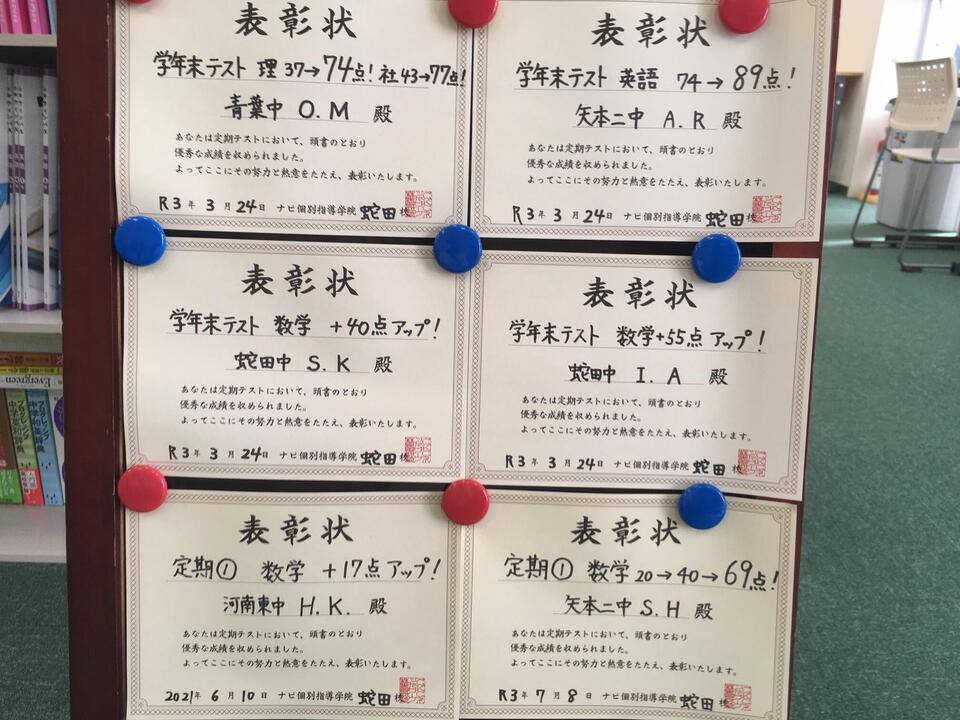 表彰状
学年末テスト 理 37→74点! 社43→77点!
青葉中 O.M 殿
あなたは定期テストにおいて、頭書のとおり
優秀な成績を収められました。
よってここにその努力と熱意をたたえ、表彰いたします。
R3年 3月 24日 ナビ個別指導学院 蛇田校
表彰状
学年末テスト 英語 74→89点!
矢本二中 A.R 殿
あなたは定期テストにおいて、頭書のとおり
優秀な成績を収められました。
よってここにその努力と熱意をたたえ、表彰いたします。
R3年 3月 24日 ナビ個別指導学院 蛇田校
表彰状
学年末テスト 数学 +40点アップ!
蛇田中 S.K 殿
あなたは定期テストにおいて、頭書のとおり
優秀な成績を収められました。
よってここにその努力と熱意をたたえ、表彰いたします。
R3年 3月 24日 ナビ個別指導学院 蛇田校
表彰状
学年末テスト 数学+55点 アップ!
蛇田中 I.A 殿
あなたは定期テストにおいて、頭書のとおり
優秀な成績を収められました。
よってここにその努力と熱意をたたえ、表彰いたします。
R3年 3月 24日 ナビ個別指導学院 蛇田校
表彰状
定期① 数学 +17点アップ!
河南東中 H.K. 殿
あなたは定期テストにおいて、頭書のとおり
優秀な成績を収められました。
よってここにその努力と熱意をたたえ、表彰いたします。
2021年 6月 10日 ナビ個別指導学院 蛇田校
表彰状
定期① 数学 20→40→69点!
矢本二中 S.H 殿
あなたは定期テストにおいて、頭書のとおり
優秀な成績を収められました。
よってここにその努力と熱意をたたえ、表彰いたします。
R3年 7月 8日 ナビ個別指導学院 蛇田校
Evergreen